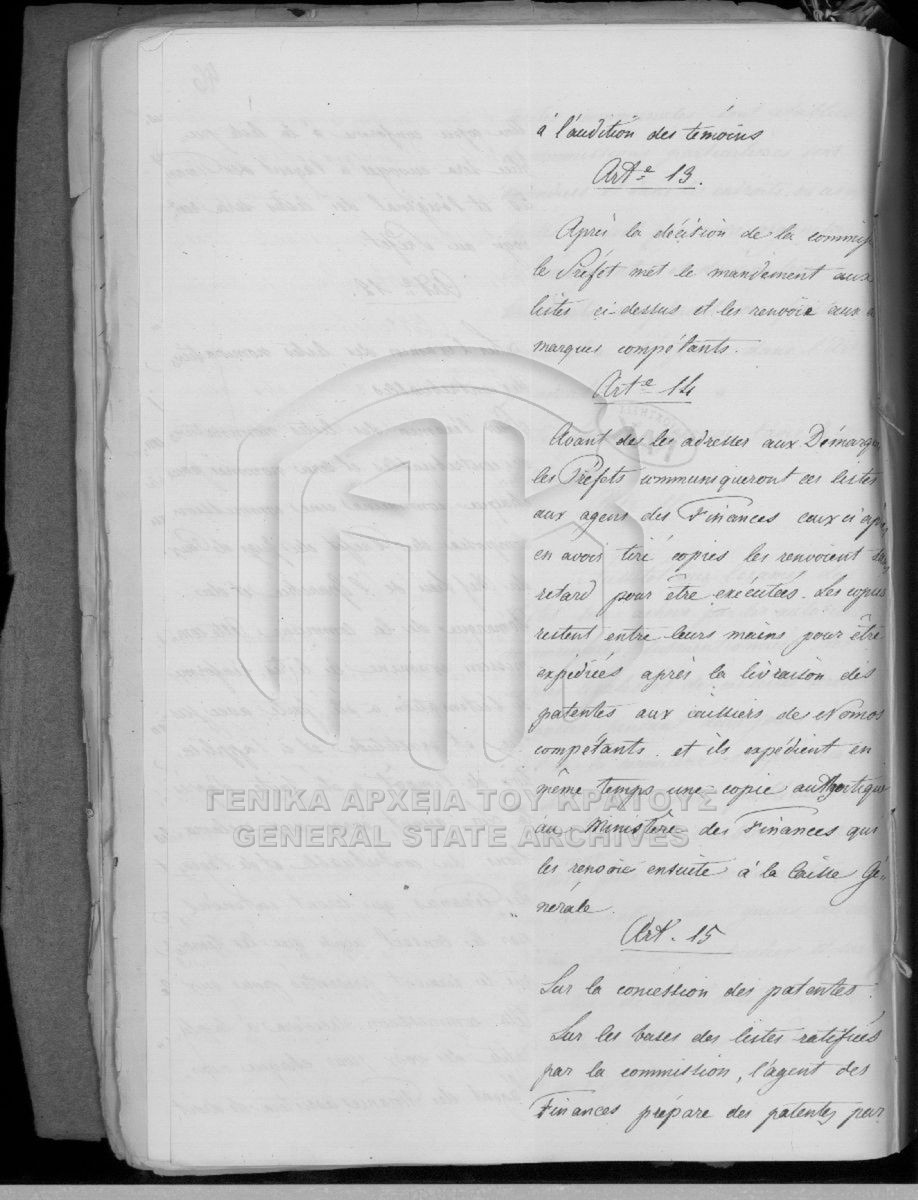 à l'audition des témoins
Art.e 13.
Après la décision de la commis
le Préfet met le mandement aux
listes ci-dessus et les renvoie aux
marques compétants.
Art.e 14
Avant des les adresser aux Démarq
les Préfets communiqueront ces listes
aux agens des Finances ceux ci après
en avoir tiré copies les renvoient sans
retard pour être exécutées. Les copies
restent entre leurs mains pour être
expédiées après la livraison des
patentes aux caissiers de Nomos
compétants et ils expédient en
même temps une copie authentique
ΓΕΝΙΚΑ ΑΡΧΕΙΑ ΤΟΥ ΚΡΑΤΟΥΣ
GENERAL STATE ARCHIVES
au Ministère des Finances qui
les renvoie ensuite à la Caisse Gé-
nérale.
Art. 15
Sur la concession des patentes.
Sur les bases des listes ratifiées
par la commission, l'agent des
Finances prépare des patentes par